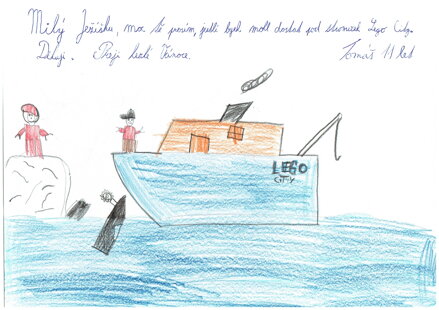 Milý Ježíšku, moc tě prosím, jestli bych mohl dostat pod stromeček Lego City.
Děkuji. Přeji hezké Vánoce. Tomáš 11 let
LEGO
CITY